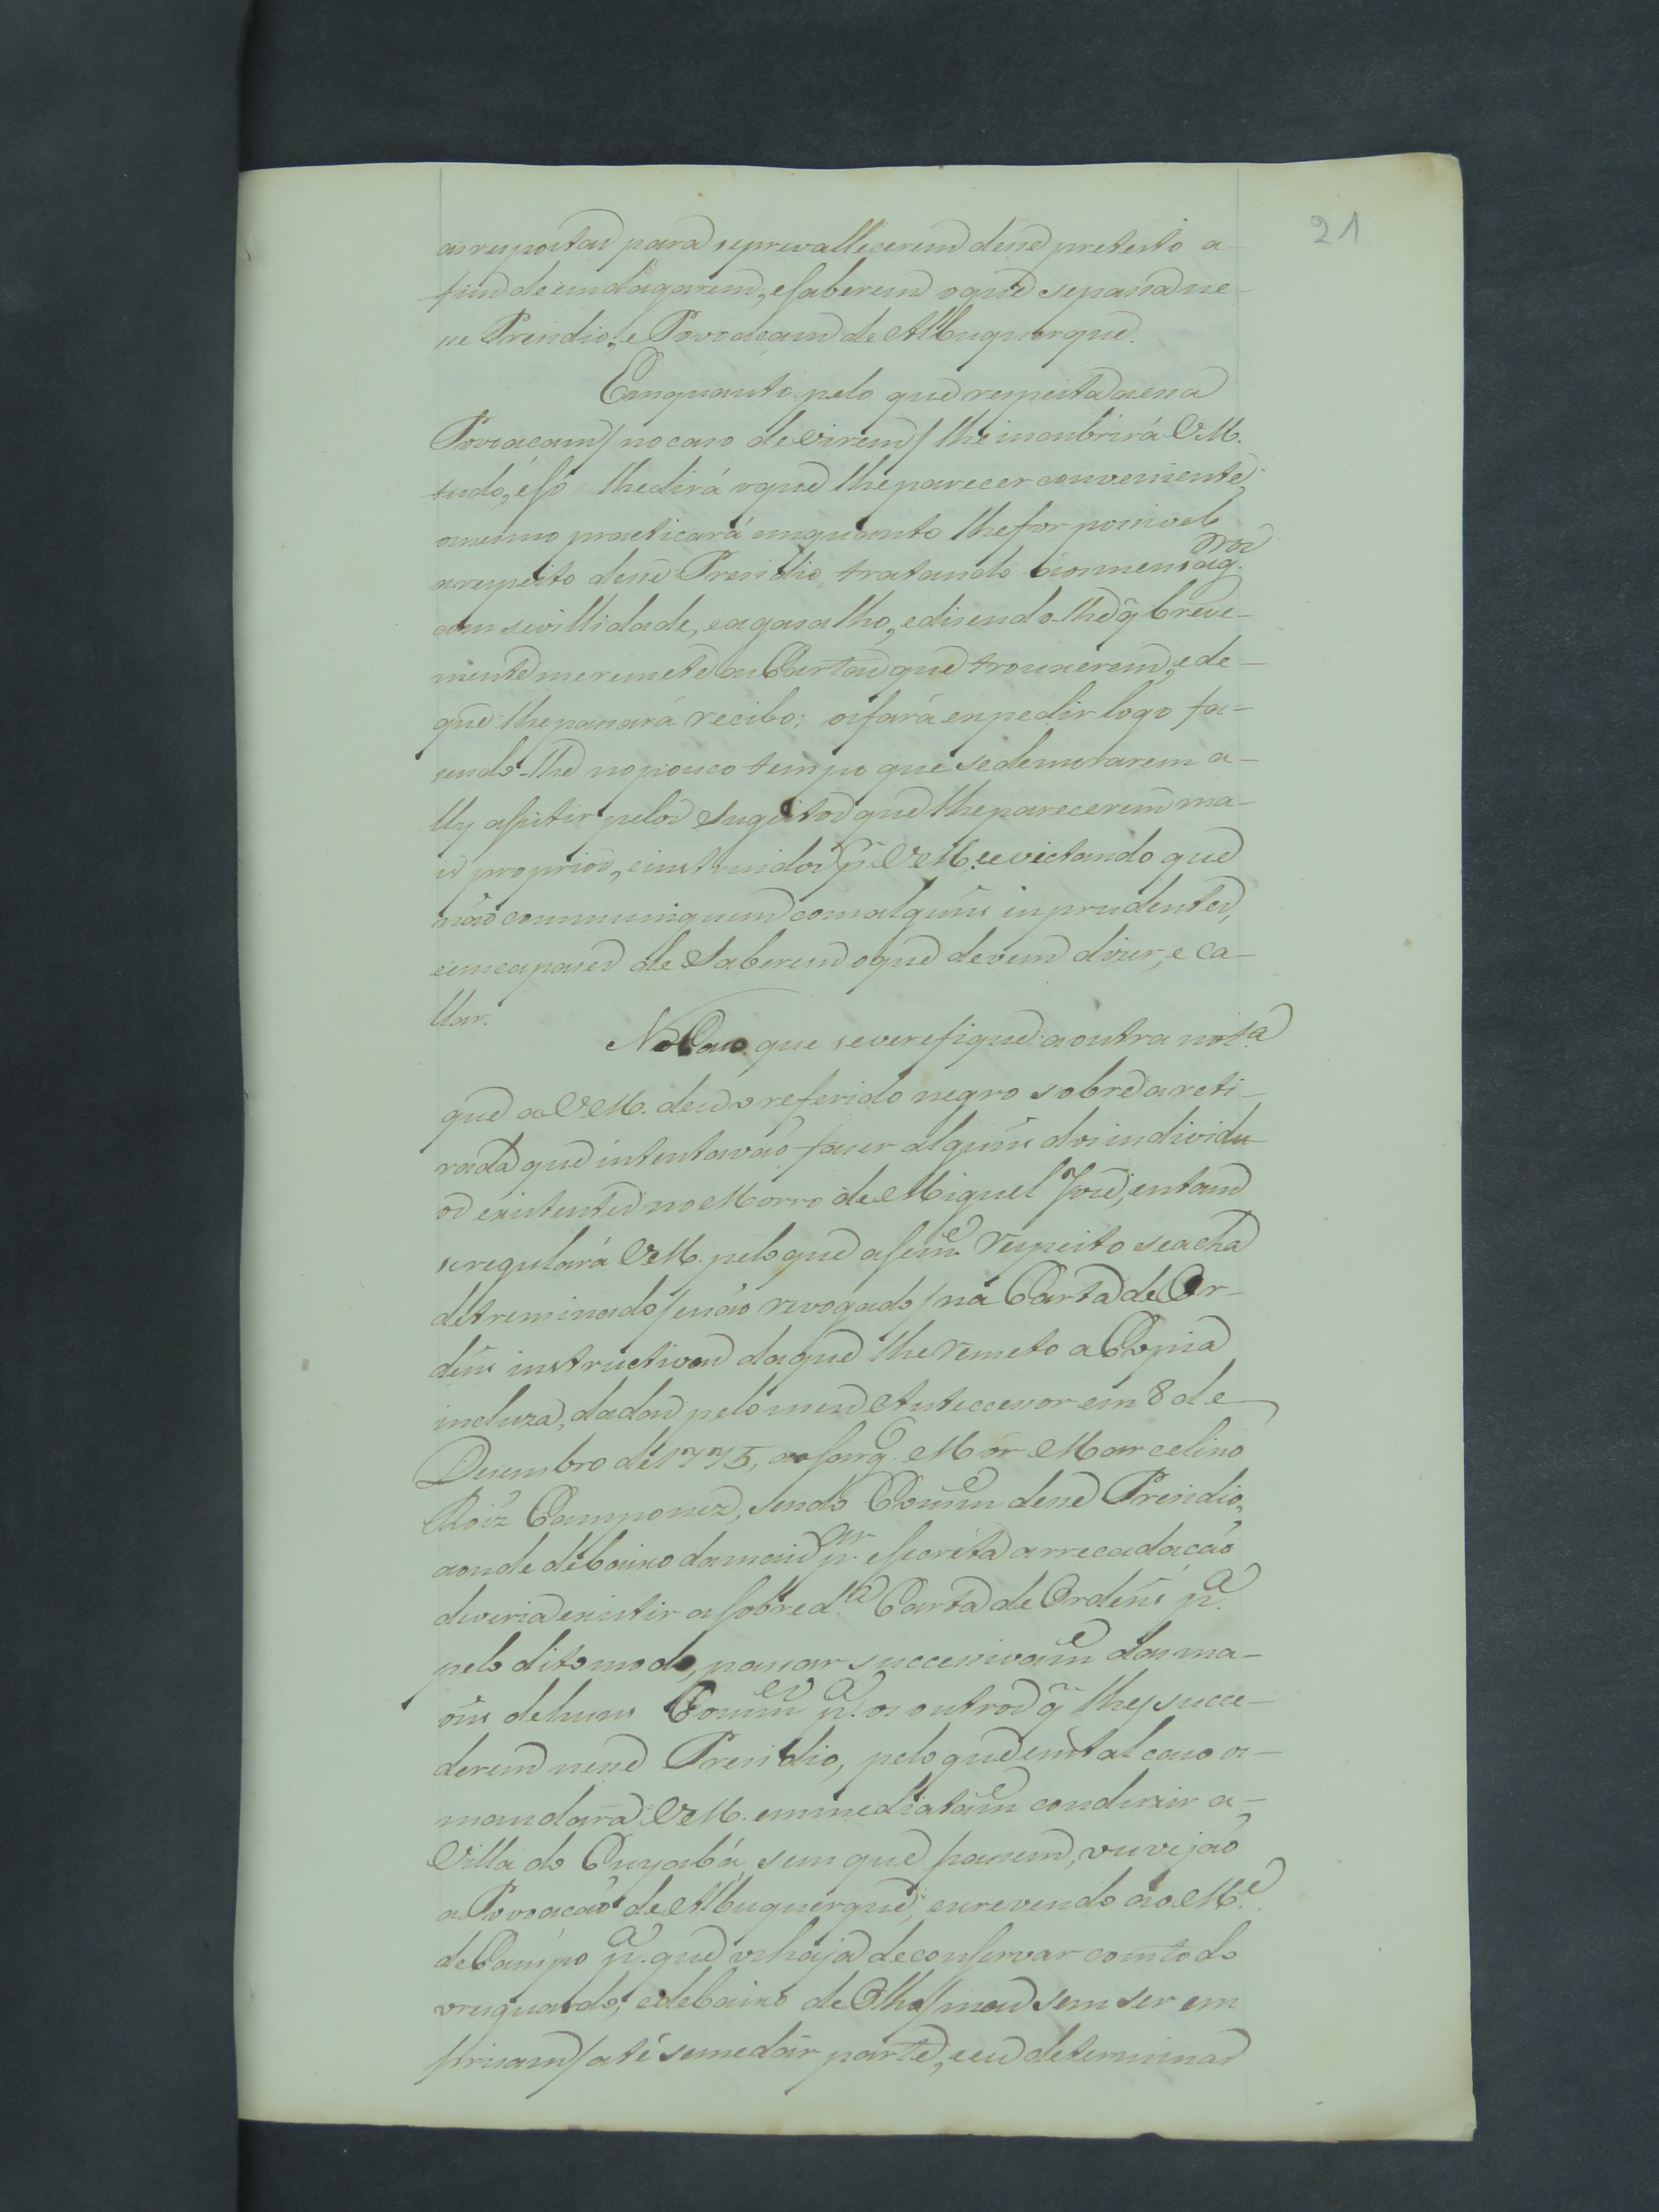 21
as respostas para seprevallecerem desse pretexto a-
fim de emdagarem, esaberem oque sepassa ne-
se Presidio, e Povoacam de Albuquerque.
Emquanto pelo que respeita aessa
Povoaçam / nocaso de virem / lhe incubrirá VM.
tudo, esó lhedirá oque lheparecer conveniente,
omesmo practicará emquanto lhefor possivel
arespeito desse Presidio, tratando aosmensag.ros
com sevillidade, eagasalho, edisendo-lhe q̃ breve-
mente meremete as Cartas que trouxerem, e de-
que lhepassará recibo; osfará expedir logo fa-
sendo-lhe nopouco tempo que sedemorarem a-
lly assistir pelos Sugeitos que lheparecerem ma-
is proprios, einstruidos p.r VM. e evictando que
não communiquem comalguñs inprudentes,
eimcapases de Saberem oque devem dizer, e ca-
llar.
No Caso que severefique aoutra not.a
que a VM. deu o referido negro sobre a reti-
rada que intentavão faser alguñs dos individu
os existentes no Morro de Miguel José, entam
seregulará VM. pelo que asem.e Respeito seacha
detreminado / enão revogado / na Carta de Or-
deñs instructivas daque lhe Remeto a Copia
incluza, dadas pelo meu Antecessor em 8 de
Desembro de 1775, ao Sarg.o Mór Marcelino
Roiz Camponez, sendo Comm.e desse Presidio,
aonde debaixo damais p.ar escrita arrecadação
deveria existir a sobred.ta Carta de Ordeñs p.a
pelo dito modo, passar successivam.e das ma-
õs dehuns Comm.es p.a os outros q̃ lhe succe-
derem nesse Presidio, pelo que em tal caso os-
mandara VM. emmediatam.e conduzir a-
Villa do Cuyabá, sem que passem, ou vejão
a Povoacão de Albuquerque, escrevendo ao M.e
de Campo p.a que os haja deconservar com todo
oresguardo, edebaixo de Olho / mas sem ser em
prisam / até semedár parte, eeu determinar